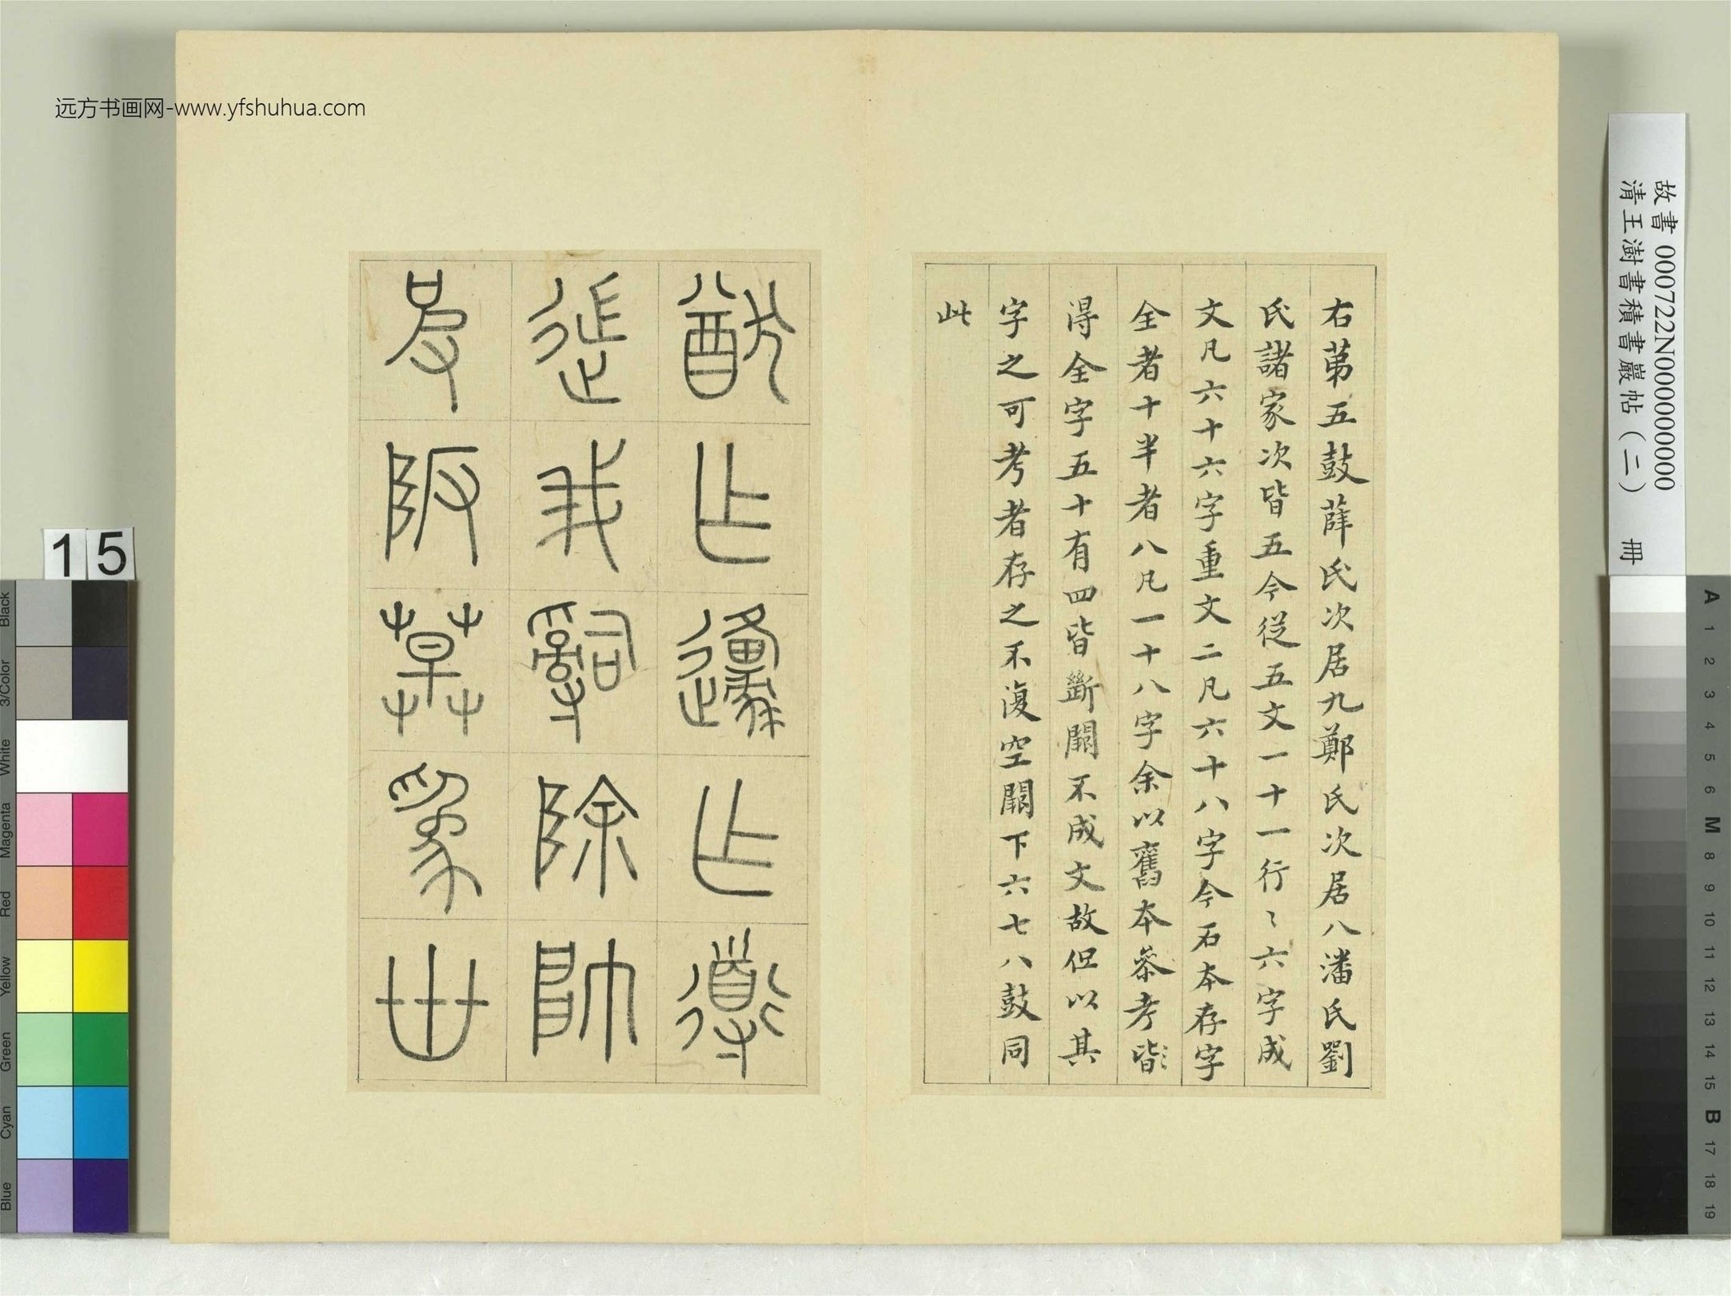 右苐五鼓薛氏次居九鄭氏次居八潘氏劉
氏諸家次皆五今從五文一十一行〻六字成
文凡六十六字重文二凡六十八字今石本存字
全者十半者八凡一十八字余以舊本叅考皆
得全字五十有四皆斷闕不成文故但以其
字之可考者存之不復空闕下六七八鼓同
此
猷乍邍乍導
我辭除帥
阪莫為世
远方书画网-www.yfshuhua.com
故書 000722N000000000
清王澍書積書巖帖(二) 冊
15
Black
3/Color
White
Magenta
Red
Yellow
Green
Cyan
Blue
A 1 2 3 4 5 6 M 8 9 10 11 12 13 14 15 B 17 18 19